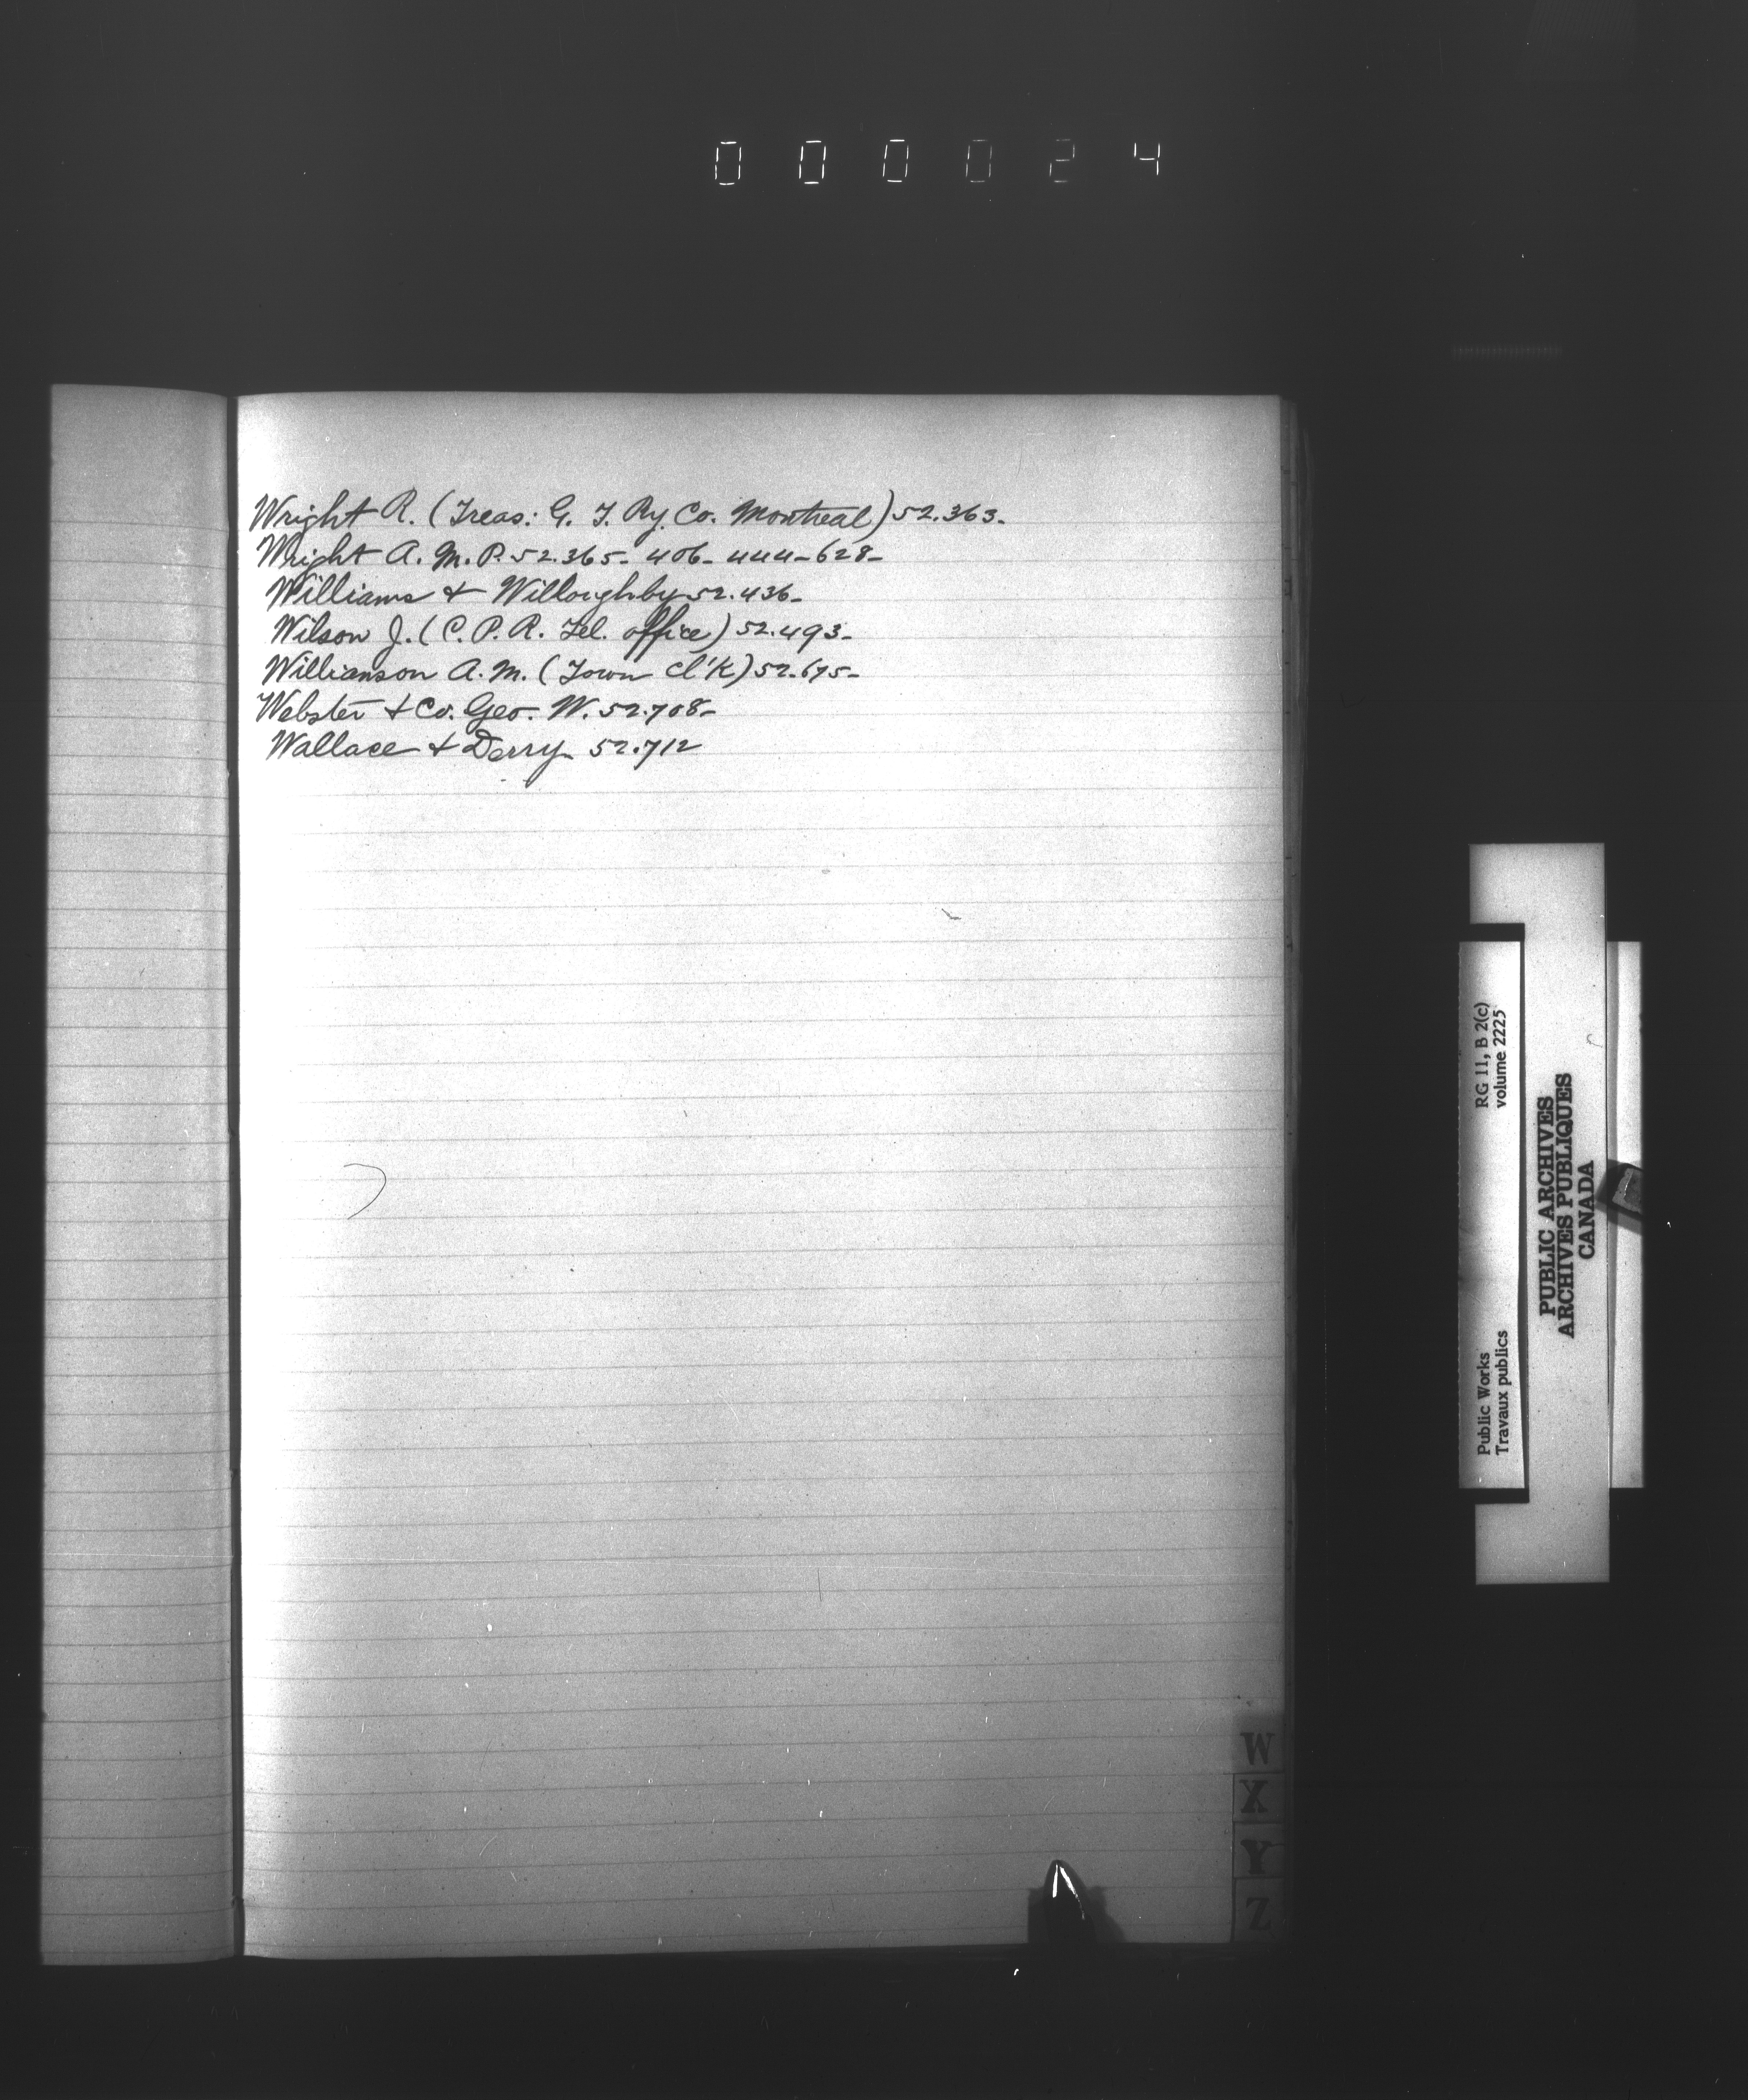 000024
Wright R. (Treas: G. T. Ry. Co. Montreal) 52.363-
Wright A. M. P. 52.365- 406- 444-628-
Williams & Willoughby 52.436-
Wilson J. (C. P. R. Tel. office) 52.493-
Willianson A. M. (Town Cl'k) 52.675-
Webster & Co. Geo. W. 52.708-
Wallace & Derry 52.712
W
X
Y
Z
Public Works
Travaux publics
RG 11, B 2(c)
volume 2225
PUBLIC ARCHIVES
ARCHIVES PUBLIQUES
CANADA